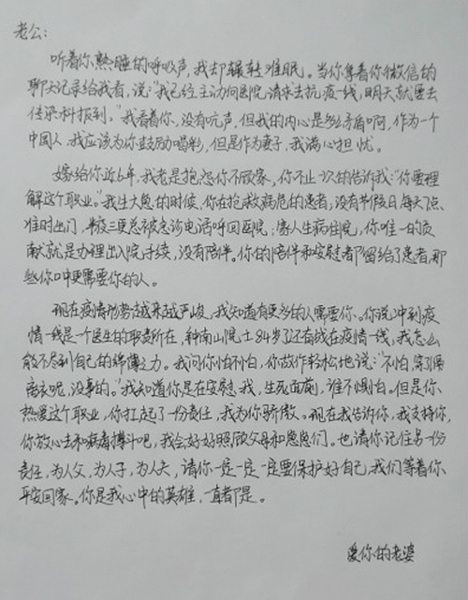 老公：
听着你熟睡的呼吸声，我却辗转难眠。当你拿着你微信的
聊天记录给我看，说："我已经主动向医院请求去抗疫一线，明天就要去
传染科报到。"我看着你，没有吭声，但我的内心是多么矛盾啊，作为一个
中国人，我应该为你鼓励喝彩，但是作为妻子，我满心担忧。
嫁给你近6年，我老是抱怨你不顾家，你不止一次的告诉我："你要理
解这个职业。"我生大恩的时候，你在抢救病危的患者，没有节假日每天7点
准时出门，半夜三更总被急诊电话呼回医院；家人生病住院，你唯一的贡
献就是办理出入院手续，没有陪伴。你的陪伴和安慰都留给了患者，那
些你口中更需要你的人。
现在疫情形势越来越严峻，我知道有更多的人需要你。你说冲到疫
情一线是一个医生的职责所在，种南山院士84岁了还战在疫情一线，我怎么
能不尽到自己的绵薄之力。我问你怕不怕，你故作轻松地说："不怕，穿了隔
离衣呢，没事的。"我知道你是在安慰我，生死面前，谁不惧怕。但是你
热爱这个职业，你扛起了一份责任，我为你骄傲。现在我告诉你，我支持你，
你放心去和病毒搏斗吧，我会好好照顾父母和恩恩们。也请你记住另一份
责任，为人父，为人子，为人夫，请你一定一定一定要保护好自己，我们等着你
平安回家。你是我心中的英雄，一直都是。
爱你的老婆